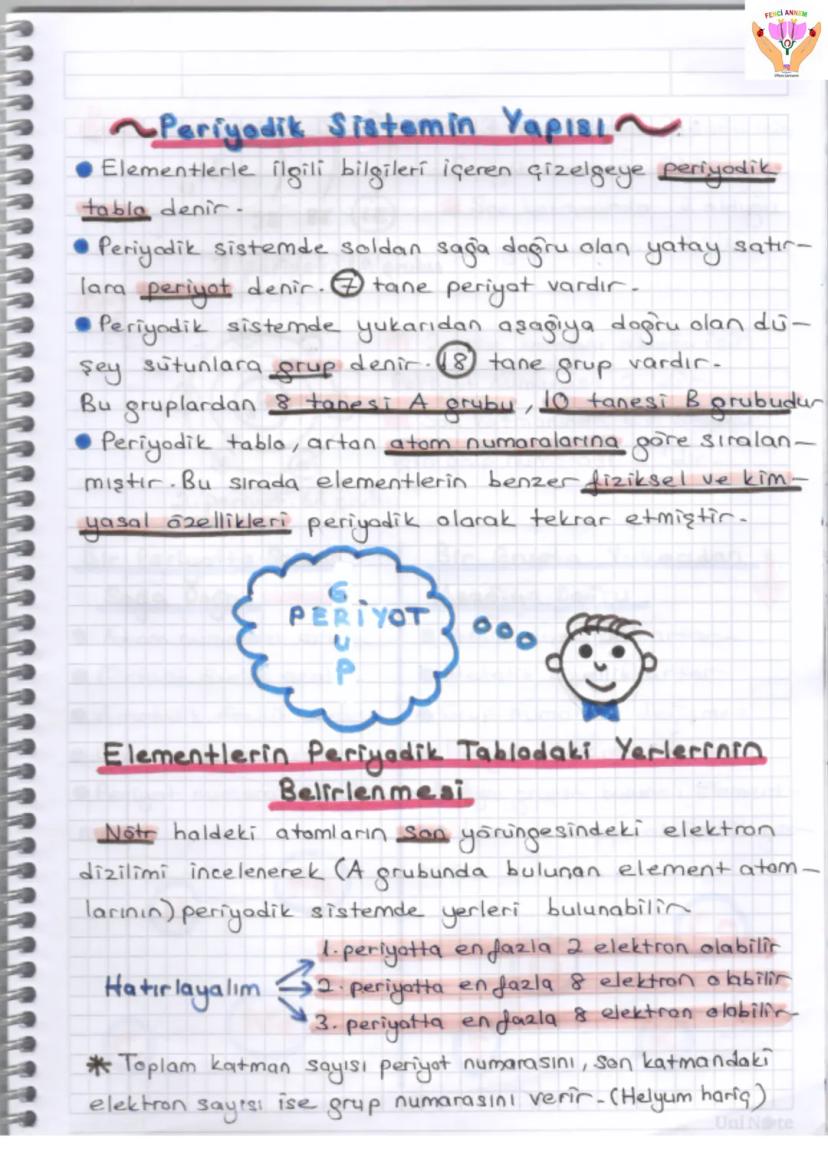 FENCİ ANNEM
Periyodik Sistemin Yapısı
Elementlerle ilgili bilgileri içeren çizelgeye periyodik
tablo denir.
Periyodik sistemde soldan sağa doğru olan yatay satır-
lara periyot denir. 7 tane periyot vardır.
Periyodik sistemde yukarıdan aşağıya doğru olan dü-
şey sütunlara grup denir. 18 tane grup vardır.
Bu gruplardan 8 tanesi A grubu, 10 tanesi B grubudur
Periyodik tablo, artan atom numaralarına göre sıralan-
mıştır. Bu sırada elementlerin benzer fiziksel ve kim-
yasal özellikleri periyodik olarak tekrar etmiştir.
G
PERİYOT
U
P
Elementlerin Periyodik Tablodaki Yerlerinin
Belirlenmesi
Nötr haldeki atomların son yörüngesindeki elektron
dizilimi incelenerek (A grubunda bulunan element atom-
larının) periyodik sistemde yerleri bulunabilir
1. periyotta en fazla 2 elektron olabilir
Hatırlayalım 2. periyotta en fazla 8 elektron olabilir
3. periyotta en fazla 8 elektron olabilir
* Toplam katman sayısı periyot numarasını, son katmandaki
elektron sayısı ise grup numarasını verir. (Helyum hariç)
UniNote